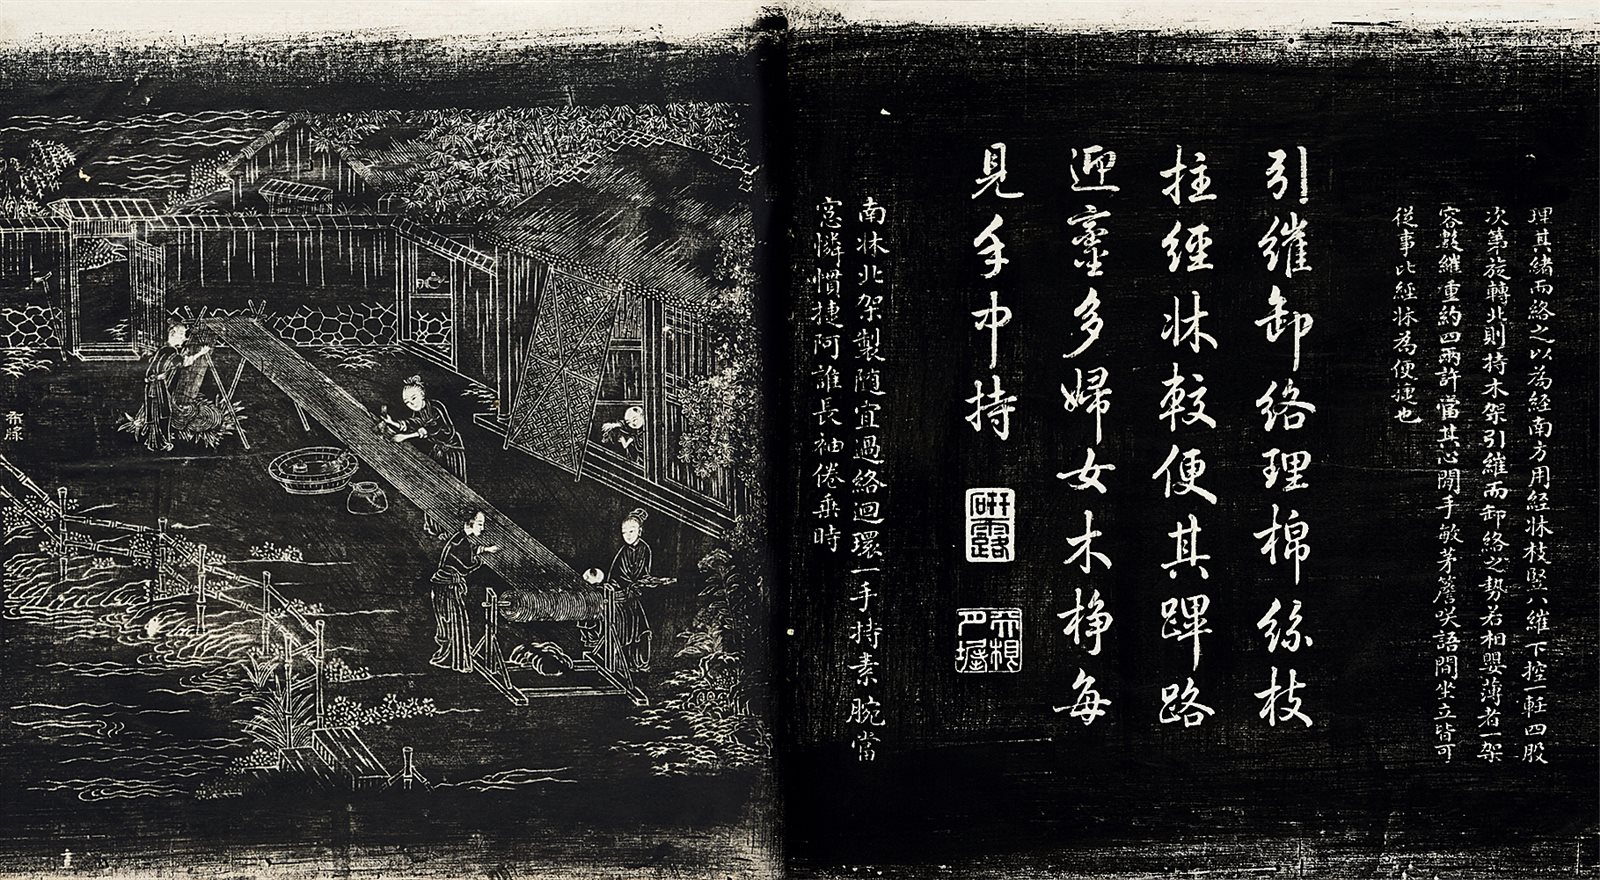 理其緒而絡之以為經南方用經牀枝竪八繀下控一軠四股
次第旋轉北則持木架引繀而卸絡之勢若相嬰薄者一架
容數繀重約四兩許當其心閒手敏茅簷咲語間坐立皆可
從事比經牀為便捷也
引繀卸絡理棉絲枝
拄經牀較便其蹕路
迎鑾多婦女木棦每
見手中持
研露
天根月窟
南牀北架製隨宜過絡迴環一手持素腕當
窓憐慣捷阿誰長袖倦垂時
布漿